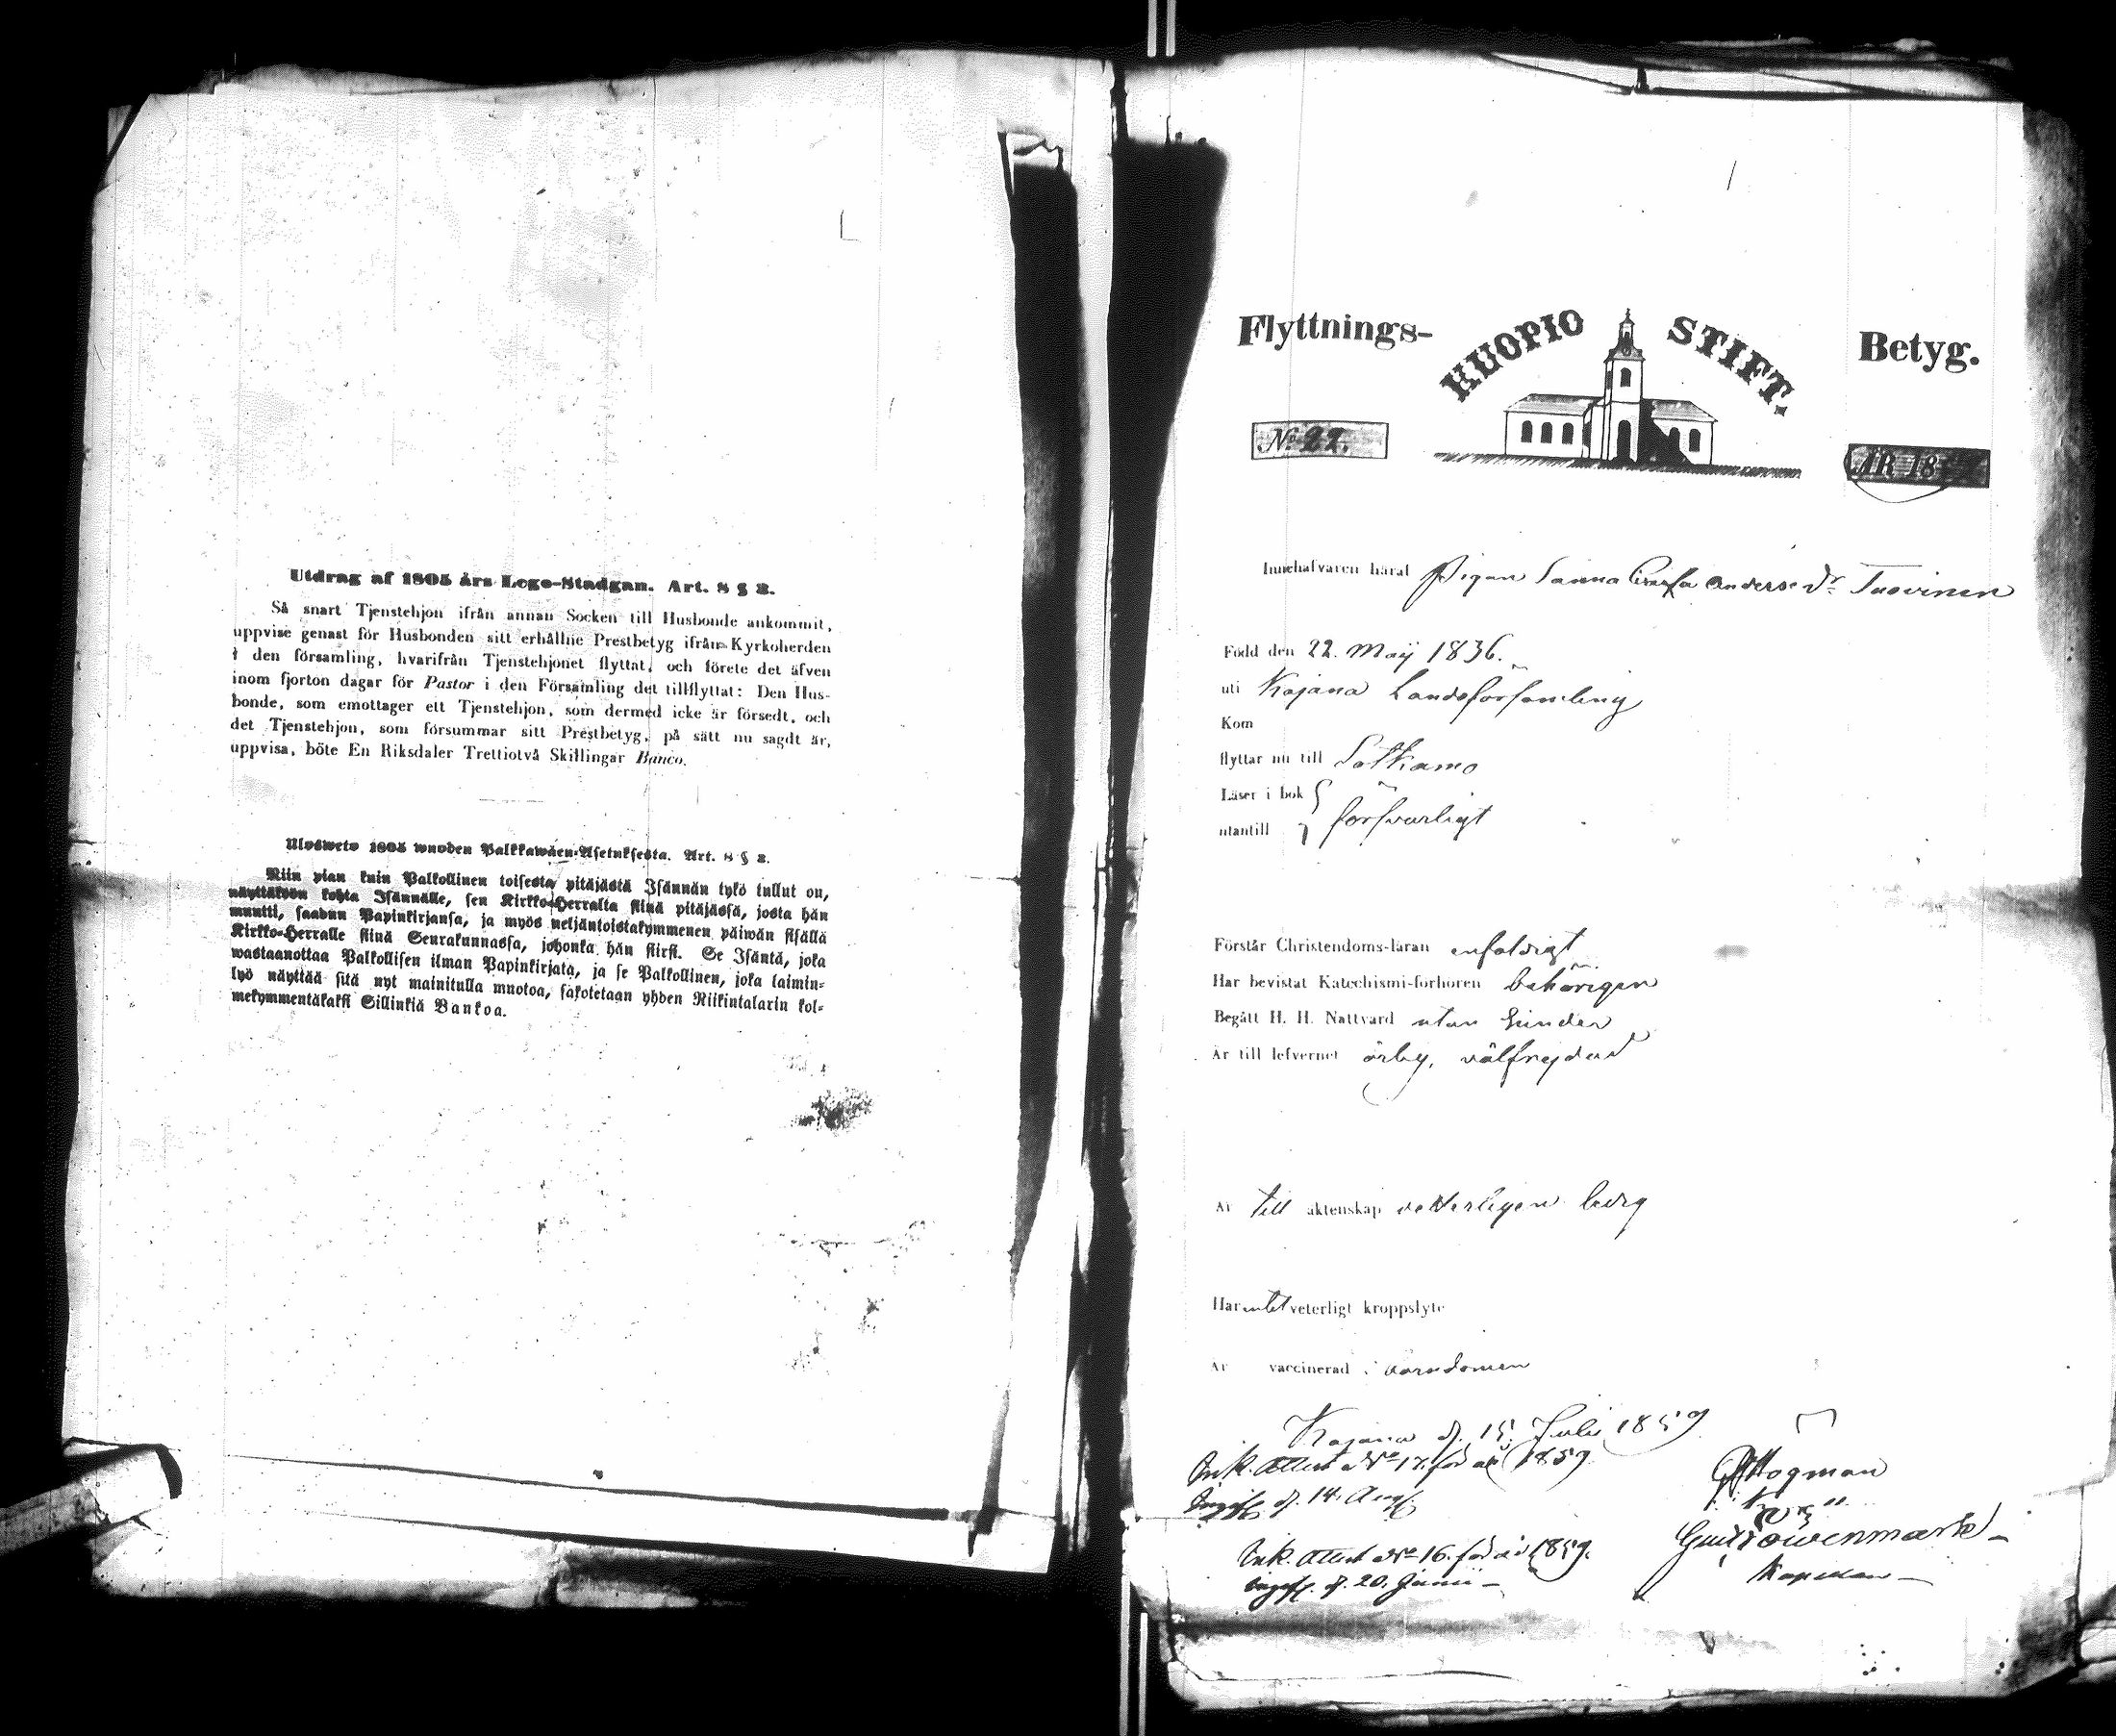 Utdrag af 1805 års Lego-Stadgan. Art. 8 § 2.
Så snart Tjenstehjon ifrån annan Socken till Husbonde ankommit,
uppvise genast för Husbonden sitt erhållne Prestbetyg ifrån Kyrkoherden
i den församling, hvarifrån Tjenstehjonet flyttat, och förete det äfven
inom fjorton dagar för Pastor i den Församling det tillflyttat: Den Hus-
bonde, som emottager ett Tjenstehjon, som dermed icke är försedt, och
det Tjenstehjon, som försummar sitt Prestbetyg, på sätt nu sagdt är,
uppvisa, böte En Riksdaler Trettiotvå Skillingar Banco.
Ulosweto 1805 wuoden Palkkawäen-Asetuksesta. Art. 8 § 2.
Niin pian kuin Palkollinen toisesta pitäjästä Isännän tykö tullut on,
näyttäköön kohta Isännälle, sen Kirkko-Herralta siinä pitäjässä, josta hän
muutti, saadun Papinkirjansa, ja myös neljäntoistakymmenen päiwän sisällä
Kirkko-Herralle siinä Seurakunnassa, johonka hän siirsi. Se Isäntä, joka
wastaanottaa Palkollisen ilman Papinkirjata, ja se Palkollinen, joka laimin-
lyö näyttää sitä nyt mainitulla muotoa, sakotetaan yhden Riikintalarin kol-
mekymmentäkaksi Sillinkiä Bankoa.
Flyttnings- HUOPIO STIFT. Betyg.
No 22. ÅR 18
Innehafvaren häraf Pigan Sanna Andersdr
Född den 22. Maij 1836.
uti Kajana Landsforsamling
Kom
flyttar nu till Sotkamo
Läser i bok
utantill försvarligt
Förstår Christendoms-läran enfaldigt
Har bevistat Katechismi-förhören behörigen
Begått H. H. Nattvard utan hinder
Är till lefvernet ärlig, välfrejdad
Är till äktenskap vetterligen ledig
Har intet veterligt kroppslyte
Är vaccinerad i barndomen
Kajana d. 15. Julii 1859
Ink. Attest No 17. för år 1859
d. 14. Aug.
Hogman
Ink. Attest No 16. för år 1859.
Löwenmark
d. 20. Junii
Kapellan